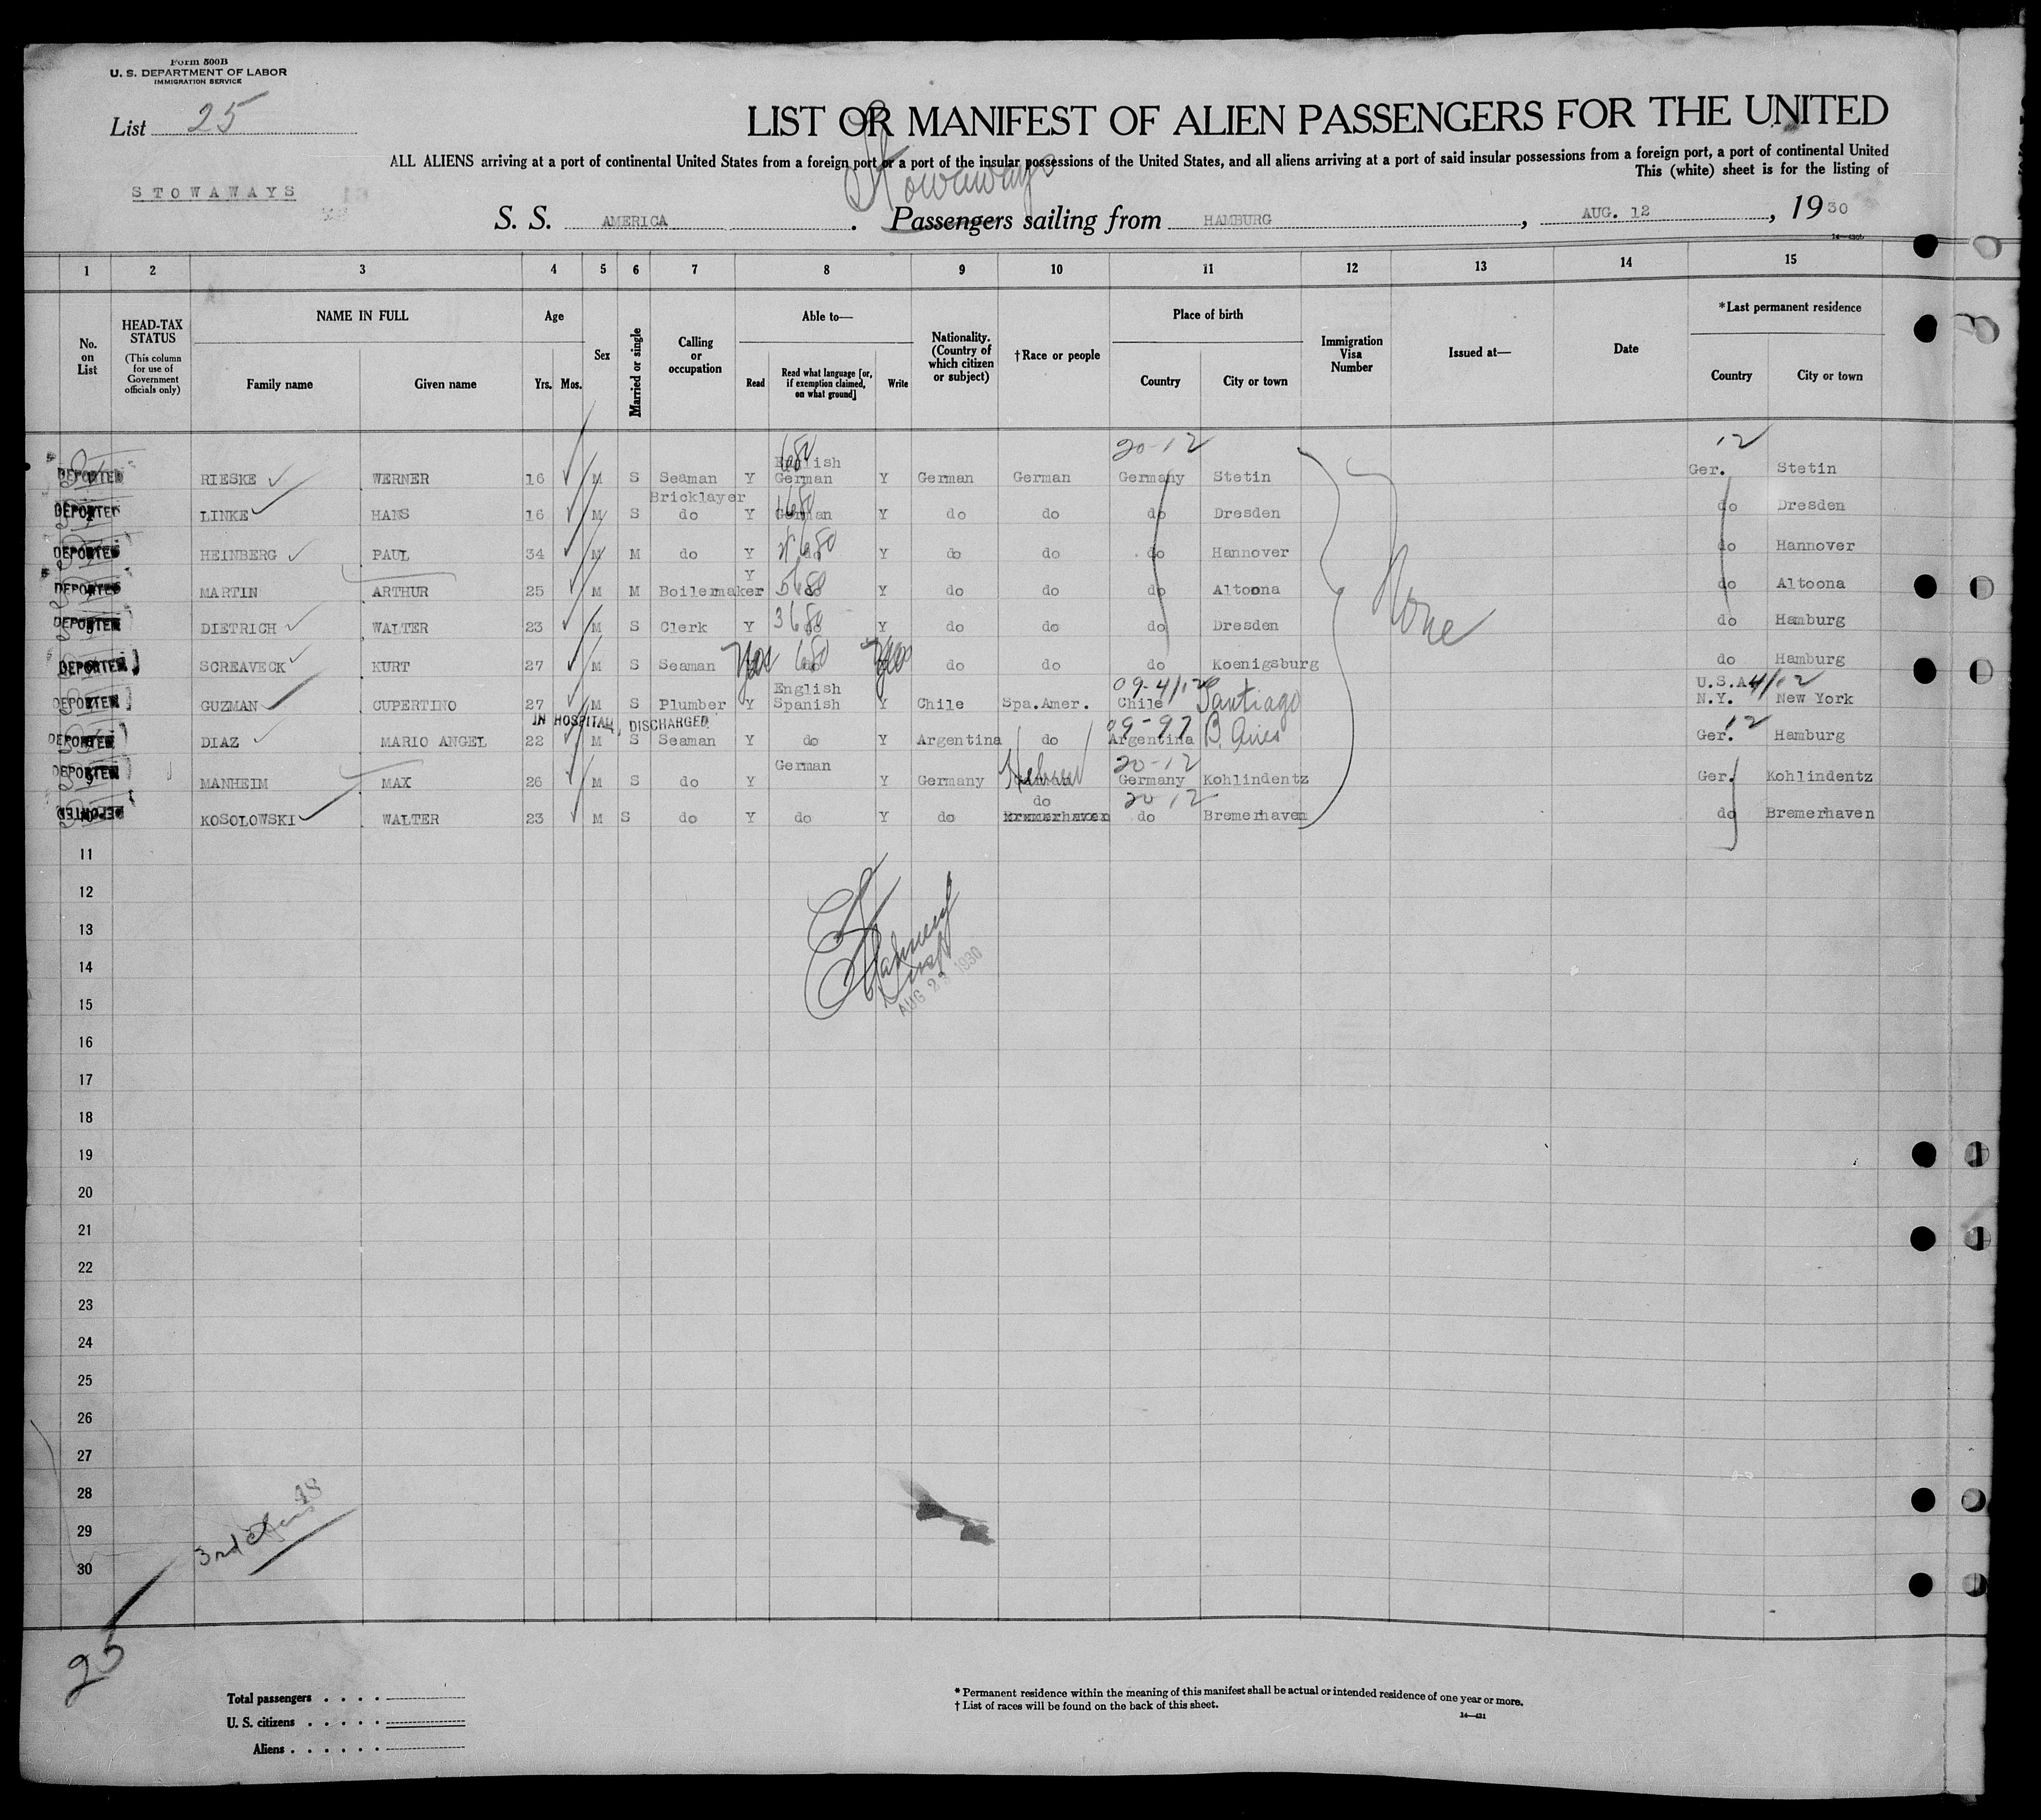 Form 500B
U. S. DEPARTMENT OF LABOR
IMMIGRATION SERVICE
List 25
LIST OR MANIFEST OF ALIEN PASSENGERS FOR THE UNITED
ALL ALIENS arriving at a port of continental United States from a foreign port or a port of the insular possessions of the United States, and all aliens arriving at a port of said insular possessions from a foreign port, a port of continental United
This (white) sheet is for the listing of
STOWAWAYS
Stowaways
S. S. AMERICA. Passengers sailing from HAMBURG, AUG. 12, 1930
1 2 3 4 5 6 7 8 9 10 11 12 13 14 15
No. on List
HEAD-TAX STATUS
(This column for use of Government officials only)
NAME IN FULL
Family name
Given name
Age
Yrs. Mos.
Sex
Married or single
Calling or occupation
Able to—
Read
Read what language [or, if exemption claimed, on what ground]
Write
Nationality. (Country of which citizen or subject)
†Race or people
Place of birth
Country
City or town
Immigration Visa Number
Issued at—
Date
*Last permanent residence
Country
City or town
20-12 12
DEPORTED RIESKE WERNER 16 M S Seaman Y English German Y German German Germany Stetin Ger. Stetin
DEPORTED LINKE HANS 16 M S Bricklayer do Y German Y do do do Dresden do Dresden
DEPORTED HEINBERG PAUL 34 M M do Y do Y do do do Hannover do Hannover
DEPORTED MARTIN ARTHUR 25 M M Boilermaker Y do Y do do do Altoona do Altoona
DEPORTED DIETRICH WALTER 23 M S Clerk Y do Y do do do Dresden do Hamburg
DEPORTED SCREAVECK KURT 27 M S Seaman Yes do Yes do do do Koenigsburg do Hamburg
None
09-4/12 4/12
DEPORTED GUZMAN CUPERTINO 27 M S Plumber Y English Spanish Y Chile Spa.Amer. Chile Santiago U.S.A. N.Y. New York
IN HOSPITAL, DISCHARGED
09-97 12
DEPORTED DIAZ MARIO ANGEL 22 M S Seaman Y do Y Argentina do Argentina B. Aires Ger. Hamburg
20-12
DEPORTED MANHEIM MAX 26 M S do Y German Y Germany Hebrew Germany Kohlindentz Ger. Kohlindentz
20-12
DEPORTED KOSOLOWSKI WALTER 23 M S do Y do Y do do do Bremerhaven do Bremerhaven
11
12
13
14
AUG 23 1930
15
16
17
18
19
20
21
22
23
24
25
26
27
28
29
30
3rd
25
Total passengers
U. S. citizens
Aliens
* Permanent residence within the meaning of this manifest shall be actual or intended residence of one year or more.
† List of races will be found on the back of this sheet.